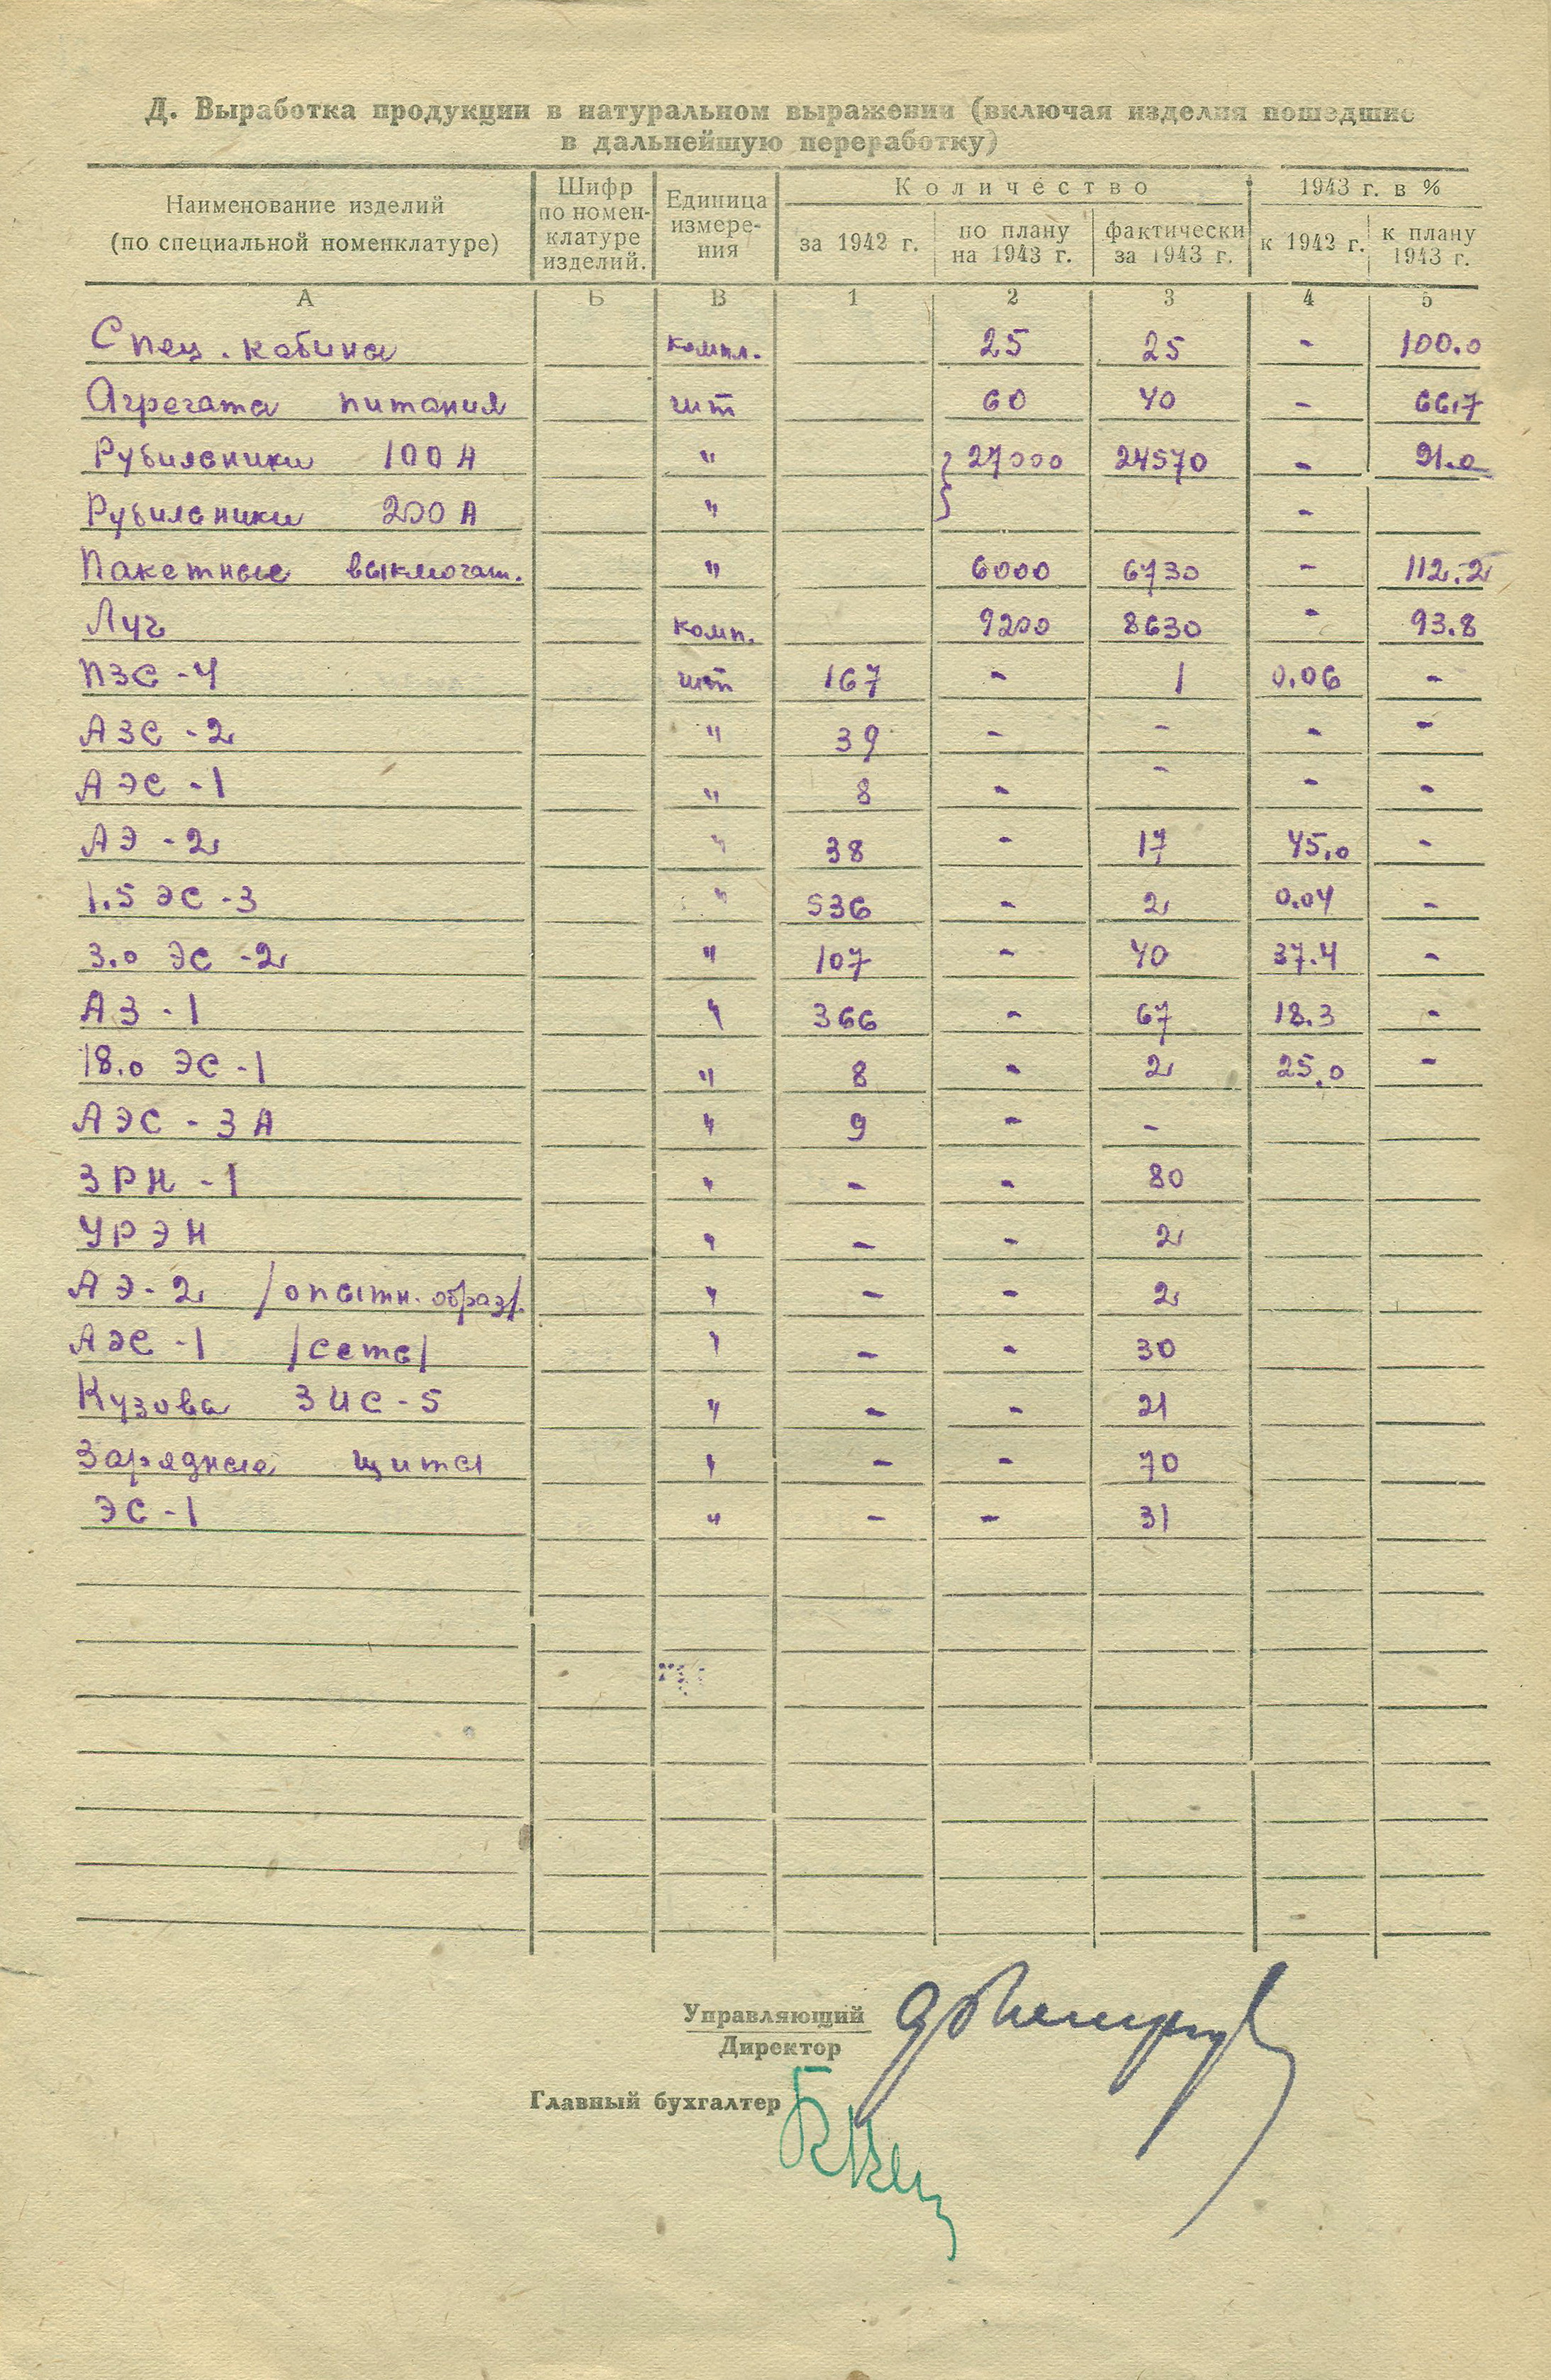 Д. Выработка продукции в натуральном выражении (включая изделия пошедшие
в дальнейшую переработку)
Наименование изделий (по специальной номенклатуре) Шифр по номен-клатуре изделий. Единица измере-ния Количество 1943 г. в %
за 1942 г. по плану на 1943 г. фактически за 1943 г. к 1942 г. к плану 1943 г.
А Б В 1 2 3 4 5
Спец. кабина компл. 25 25 - 100.0
Агрегата питания шт 60 40 - 66,7
Рубильники 100 А " 27000 24570 - 91.0
Рубильники 200 А " -
Пакетные выключат. " 6000 6730 - 112.2
Луч комп. 9200 8630 - 93.8
ПЗС - 4 шт 167 - 1 0.06 -
АЗС - 2 " 39 - - - -
АЭС - 1 " 8 - - - -
АЭ - 2 " 38 - 17 45,0 -
1.5 ЭС - 3 " 536 - 2 0.04 -
3.0 ЭС - 2 " 107 - 40 37.4 -
АЗ - 1 " 366 - 67 18.3 -
18.0 ЭС - 1 " 8 - 2 25,0 -
АЭС - 3 А " 9 - -
ЗРН - 1 " - - 80
УРЭН " - - 2
АЭ - 2 /опытн. образ/. " - - 2
АЭС - 1 /сета/ " - - 30
Кузова ЗИС - 5 " - - 21
Зарядные щиты " - - 70
ЭС - 1 " - - 31
Управляющий
Директор
Главный бухгалтер